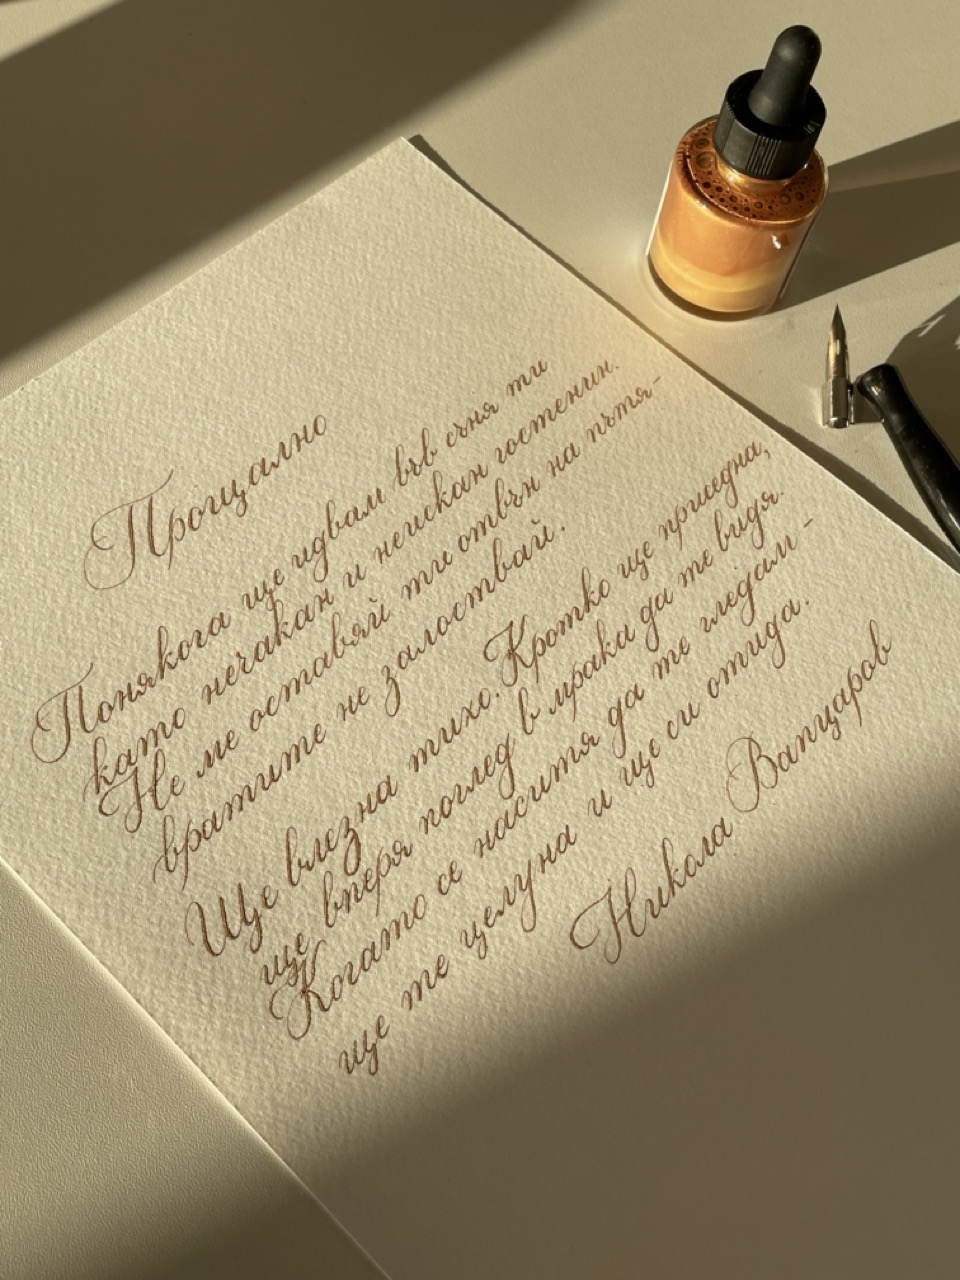 Прощално
Понякога ще идвам във съня ти
като нечакан и неискан гостенин.
Не ме оставяй ти отвън на пътя-
вратите не залоствай.
Ще влезна тихо. Кротко ще приседна,
ще вперя поглед в мрака да те видя.
Когато се наситя да те гледам -
ще те целуна и ще си отида.
Никола Вапцаров